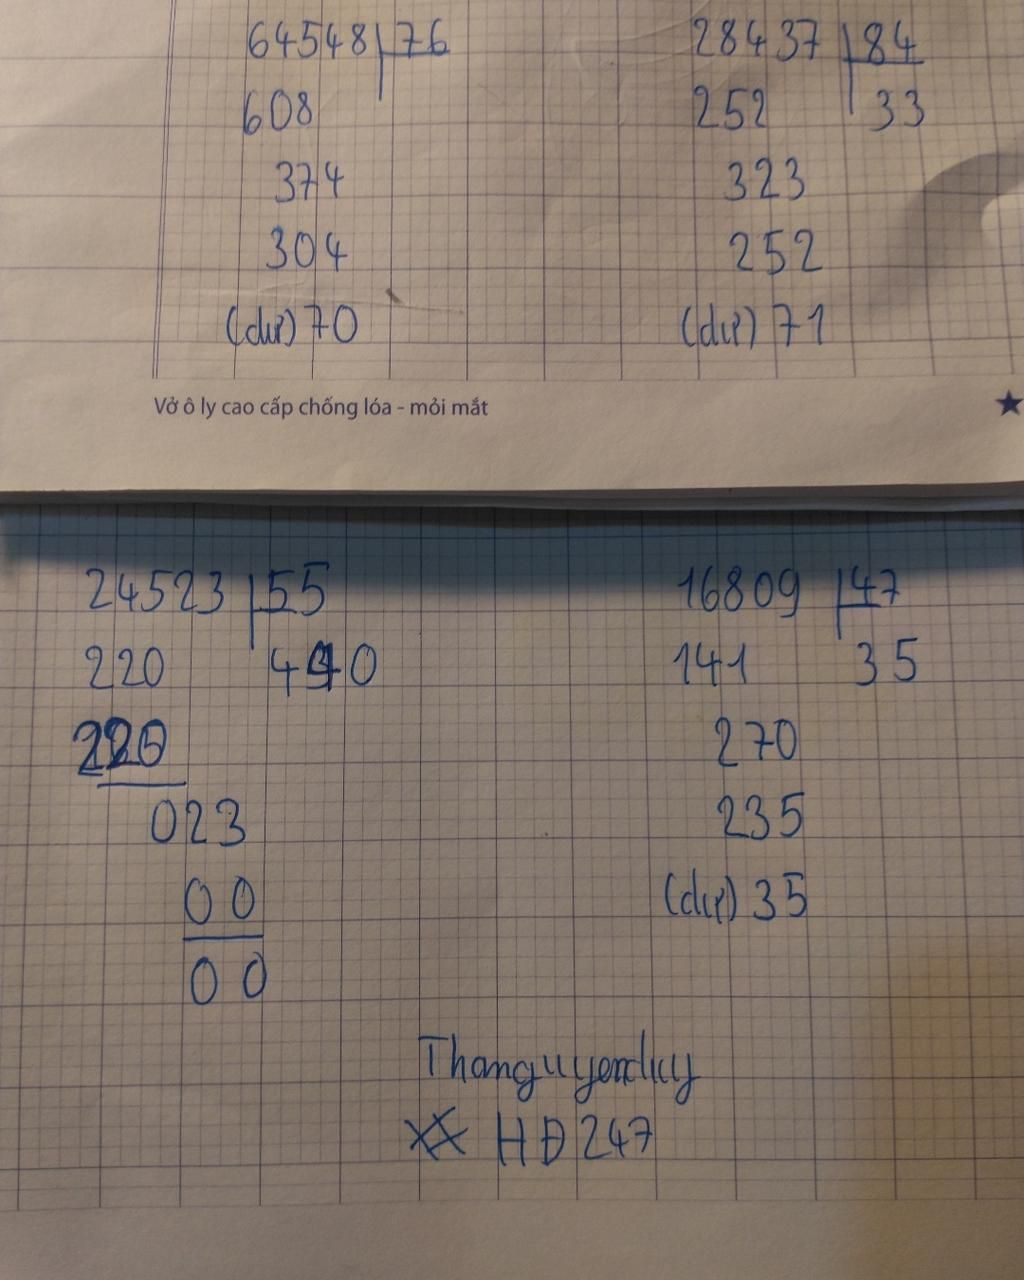 64548 76
608
374
304
(dư) 70
28437 84
252 33
323
252
(dư) 71
Vở ô ly cao cấp chống lóa - mỏi mắt
24523 55
220 440
220
023
00
00
16809 47
141 35
270
235
(dư) 35
Thanguyenduy
HĐ247